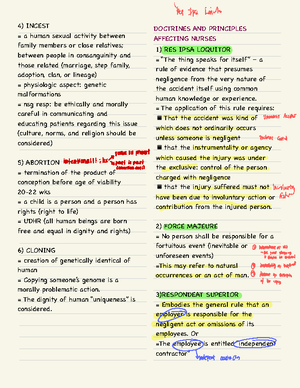 4) INCEST
= a human sexual activity between
family members or close relatives;
between people in consanguinity and
those related (marriage, step family,
adoption, clan, or lineage)
= physiologic aspect: genetic
malformations
= nsg resp: be ethically and morally
careful in communicating and
educating patients regarding this issue
(culture, norms, and religion should be
considered)
5) ABORTION
= termination of the product of
conception before age of viability
20-22 wks
= a child is a person and a person has
rights (right to life)
= UDHR (all human beings are born
free and equal in dignity and rights)
6) CLONING
= creation of genetically identical of
human
= Copying someone's genome is a
morally problematic action.
= The dignity of human "uniqueness" is
considered.
DOCTRINES AND PRINCIPLES
AFFECTING NURSES
1) RES IPSA LOQUITOR
= "The thing speaks for itself" – a
rule of evidence that presumes
negligence from the very nature of
the accident itself using common
human knowledge or experience.
= The application of this rule requires:
■ That the accident was kind of
which does not ordinarily occurs
unless someone is negligent
■ that the instrumentality or agency
which caused the injury was under
the exclusive: control of the person
charged with negligence
■ that the injury suffered must not
have been due to involuntary action or
contribution from the injured person.
2) FORCE MAJEURE
= No person shall be responsible for a
fortuitous event (inevitable or
unforeseen events)
=This may refer to natural
occurrences or an act of man.
3)RESPONDEAT SUPERIOR
= Embodies the general rule that an
employer is responsible for the
negligent act or omissions of its
employees. Or
=The employee is entitled independent
contractor